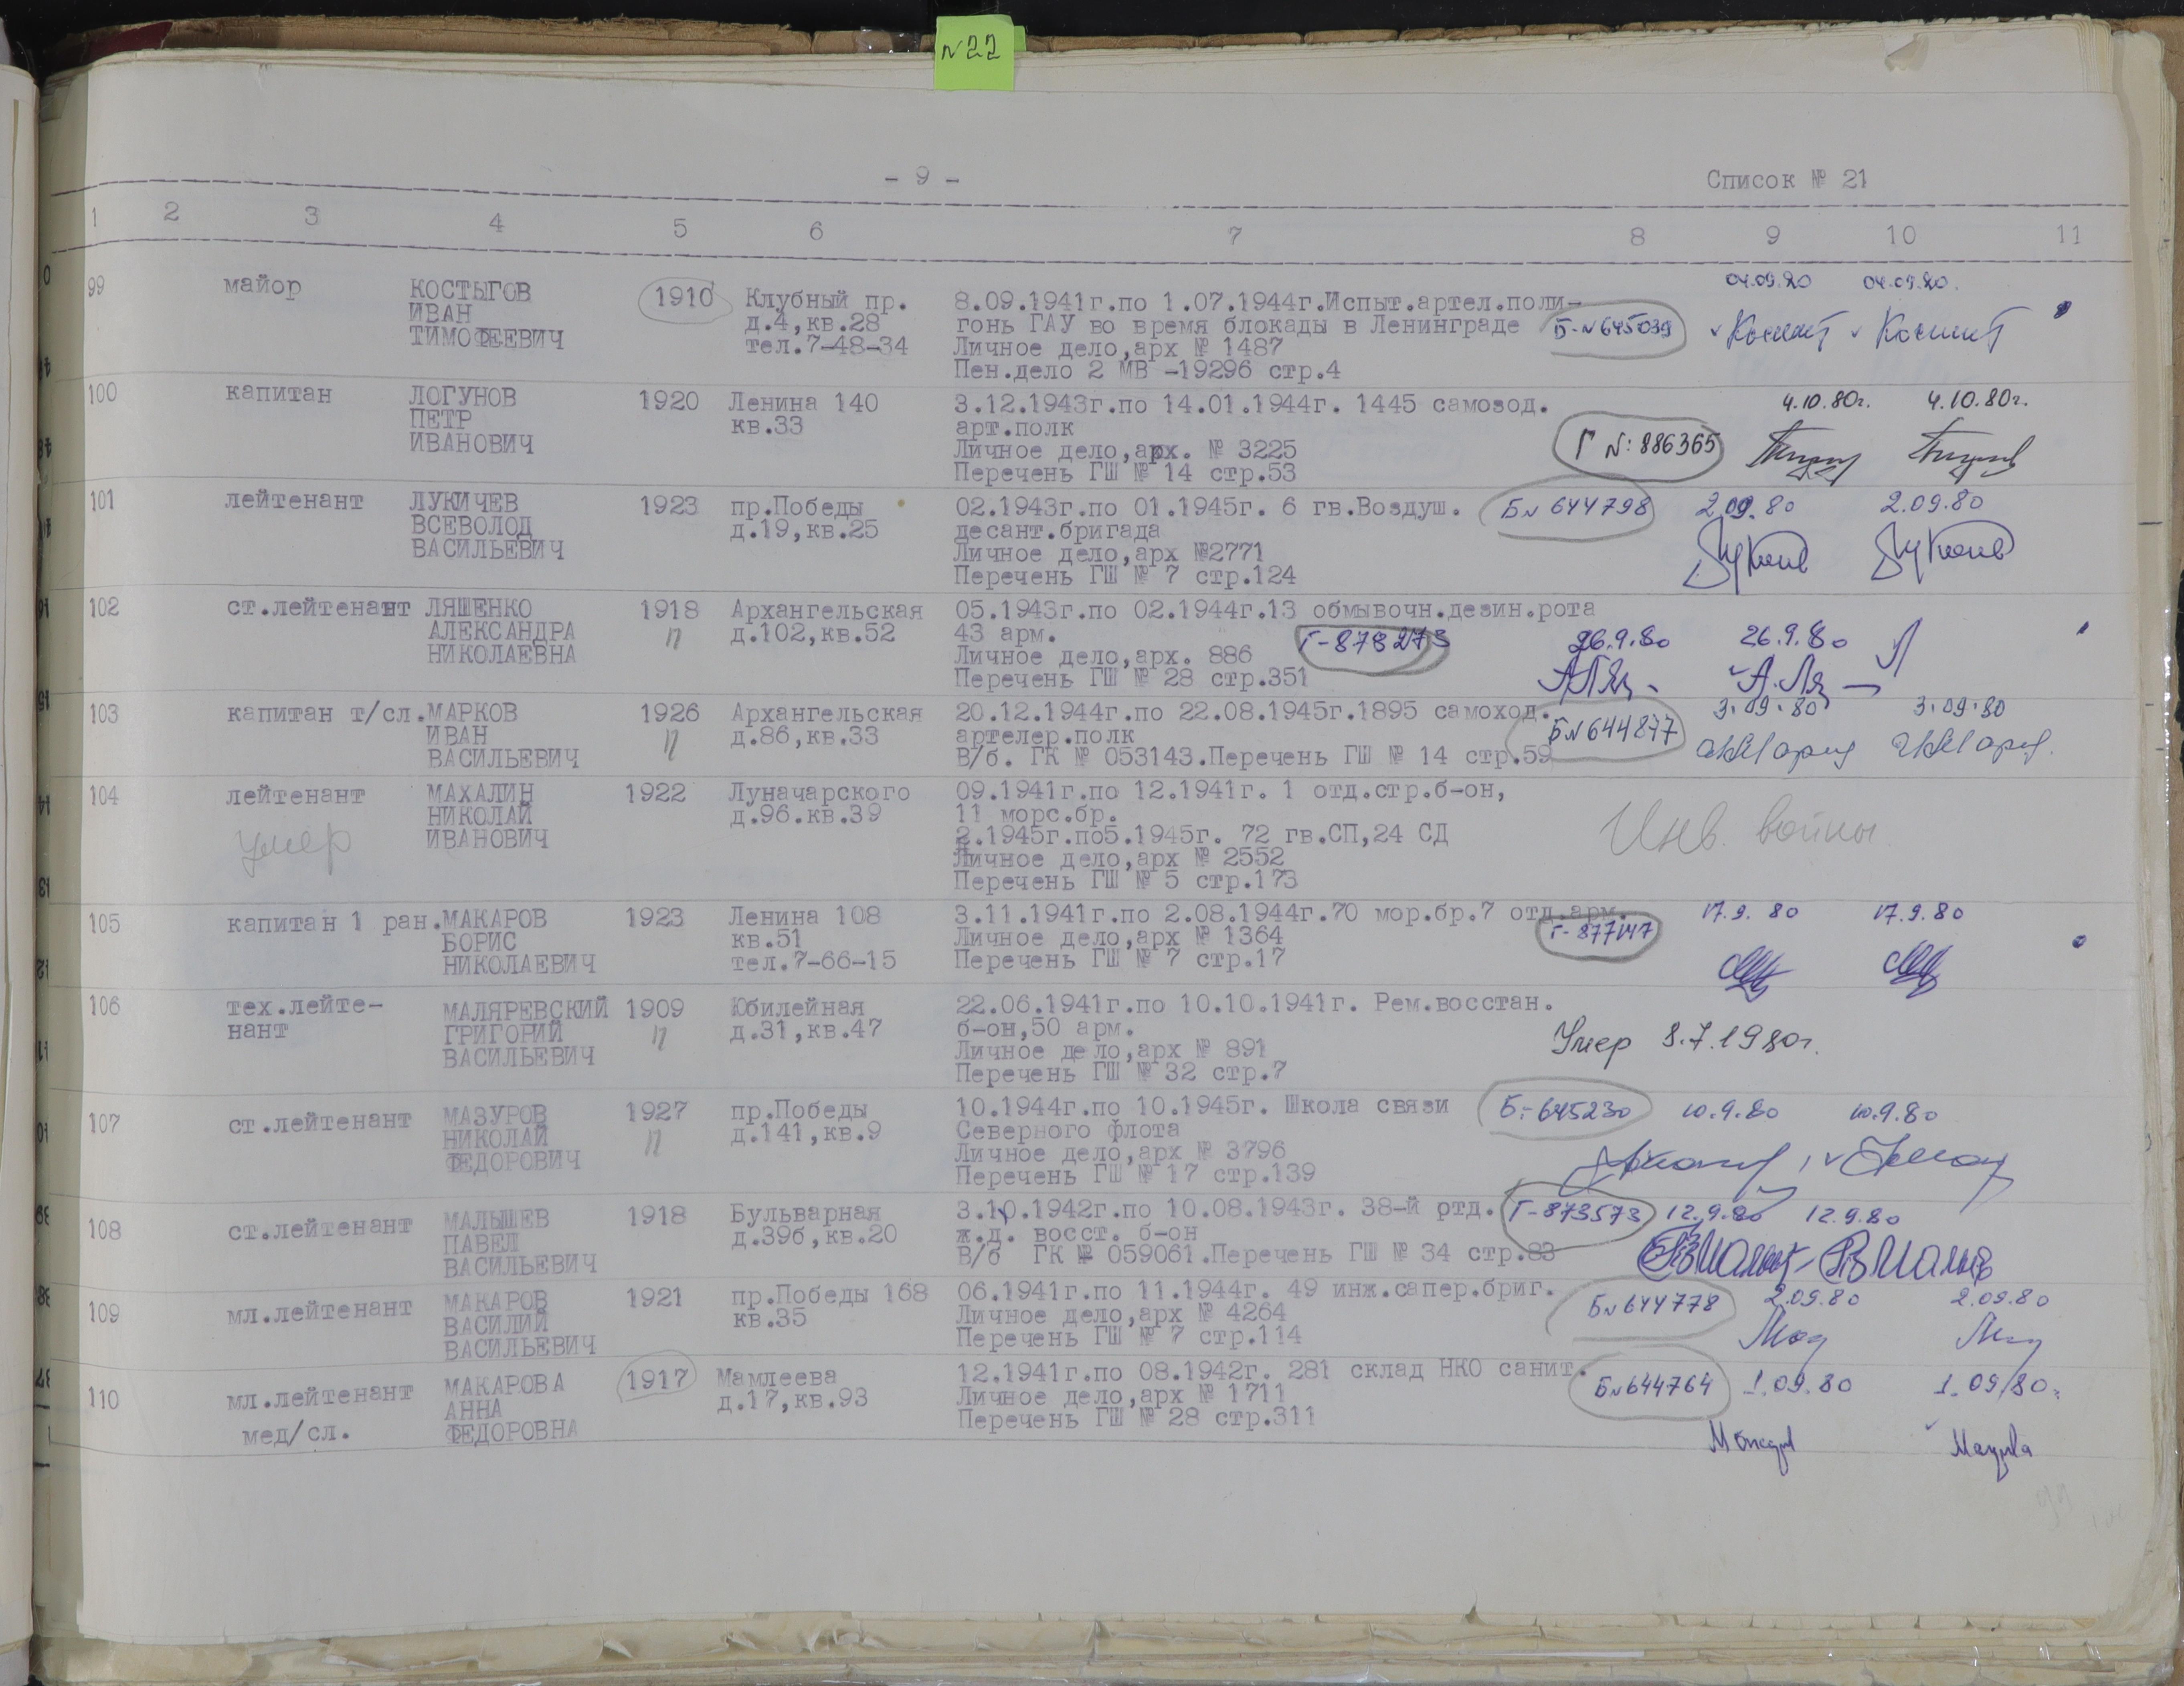 N22
- 9 -
Список № 21
1 2 3 4 5 6 7 8 9 10 11
99 майор КОСТЫГОВ ИВАН ТИМОФЕЕВИЧ 1910 Клубный пр. д.4,кв.28 тел.7-48-34
8.09.1941г.по 1.07.1944г.Испыт.артел.поли-
гонь ГАУ во время блокады в Ленинграде
Личное дело,арх № 1487
Пен.дело 2 МВ -19296 стр.4
Б-N645039 04.09.80 04.09.80.
100 капитан ЛОГУНОВ ПЕТР ИВАНОВИЧ 1920 Ленина 140 кв.33
3.12.1943г.по 14.01.1944г. 1445 самозод.
арт.полк
Личное дело,арх. № 3225
Перечень ГШ № 14 стр.53
Г N: 886365 4.10.80г. 4.10.80г.
101 лейтенант ЛУКИЧЕВ ВСЕВОЛОД ВАСИЛЬЕВИЧ 1923 пр.Победы д.19,кв.25
02.1943г.по 01.1945г. 6 гв.Воздуш.
десант.бригада
Личное дело,арх №2771
Перечень ГШ № 7 стр.124
БN 644798 2.09.80 2.09.80
102 ст.лейтенант ЛЯШЕНКО АЛЕКСАНДРА НИКОЛАЕВНА 1918 П Архангельская д.102,кв.52
05.1943г.по 02.1944г.13 обмывочн.дезин.рота
43 арм.
Личное дело,арх. 886
Перечень ГШ № 28 стр.351
26.9.80 26.9.80
103 капитан т/сл. МАРКОВ ИВАН ВАСИЛЬЕВИЧ 1926 П Архангельская д.86,кв.33
20.12.1944г.по 22.08.1945г.1895 самоход.
артелер.полк
В/б. ГК № 053143.Перечень ГШ № 14 стр.59
БN644877 3.09.80 3.09.80
104 лейтенант МАХАЛИН НИКОЛАЙ ИВАНОВИЧ 1922 Луначарского д.96.кв.39
умер
09.1941г.по 12.1941г. 1 отд.стр.б-он,
11 морс.бр.
2.1945г.по5.1945г. 72 гв.СП,24 СД
Личное дело,арх № 2552
Перечень ГШ № 5 стр.173
Инв. войны
105 капитан 1 ран. МАКАРОВ БОРИС НИКОЛАЕВИЧ 1923 Ленина 108 кв.51 тел.7-66-15
3.11.1941г.по 2.08.1944г.70 мор.бр.7 отд.арм.
Личное дело,арх № 1364
Перечень ГШ № 7 стр.17
Г-877147 17.9.80 17.9.80
106 тех.лейте-
нант МАЛЯРЕВСКИЙ ГРИГОРИЙ ВАСИЛЬЕВИЧ 1909 П Юбилейная д.31,кв.47
22.06.1941г.по 10.10.1941г. Рем.восстан.
б-он,50 арм.
Личное дело,арх № 891
Перечень ГШ № 32 стр.7
Умер 8.7.1980г.
107 ст.лейтенант МАЗУРОВ НИКОЛАЙ ФЕДОРОВИЧ 1927 П пр.Победы д.141,кв.9
10.1944г.по 10.1945г. Школа связи
Северного флота
Личное дело,арх № 3796
Перечень ГШ № 17 стр.139
Б-645230 10.9.80 10.9.80
108 ст.лейтенант МАЛЫШЕВ ПАВЕЛ ВАСИЛЬЕВИЧ 1918 Бульварная д.39б,кв.20
3.10.1942г.по 10.08.1943г. 38-й отд.
ж.д. восст. б-он
В/б ГК № 059061.Перечень ГШ № 34 стр.83
Г-873573 12.9.80 12.9.80
109 мл.лейтенант МАКАРОВ ВАСИЛИЙ ВАСИЛЬЕВИЧ 1921 пр.Победы 168 кв.35
06.1941г.по 11.1944г. 49 инж.сапер.бриг.
Личное дело,арх № 4264
Перечень ГШ № 7 стр.114
БN644778 2.09.80 2.09.80
110 мл.лейтенант мед/сл. МАКАРОВА АННА ФЕДОРОВНА 1917 Мамлеева д.17,кв.93
12.1941г.по 08.1942г. 281 склад НКО санит.
Личное дело,арх № 1711
Перечень ГШ № 28 стр.311
БN644764 1.09.80 1.09.80